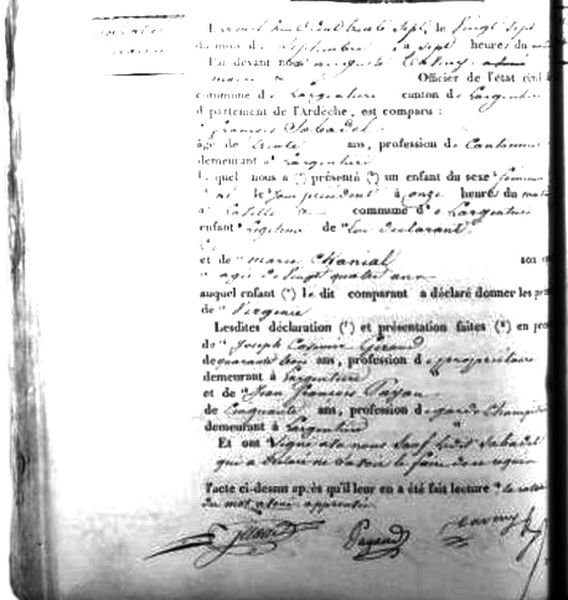 L'an mil huit Cent trente Sept, le Vingt Sept
du mois de Septembre à Sept heures du
Par devant nous auguste
maire Officier de l'état civil
commune de Largentière canton de Largentière
département de l'Ardèche, est comparu :
françois Sabadel
âgé de trente ans, profession de Cantonnier
demeurant à Largentière
lequel nous a (*) présenté (*) un enfant du sexe féminin
né le jour précédent à onze heures du matin
à commune de Largentière
enfant légitime de lui déclarant
et de marie Chanial son
agée de vingt quatre ans
auquel enfant (*) le dit comparant a déclaré donner les pré
de Virginie
Lesdites déclaration (*) et présentation faites (*) en pré
de Joseph Casimir Giraud
de quarante trois ans, profession de propriétaire
demeurant à Largentière
et de Jean françois Payan
de Cinquante ans, profession de garde Champêtre
demeurant à Largentière
Et ont signé avec nous Sauf ledit Sabadel
qui a déclaré ne savoir le faire de ce requis
l'acte ci-dessus après qu'il leur en a été fait lecture
du mot
Giraud Payan